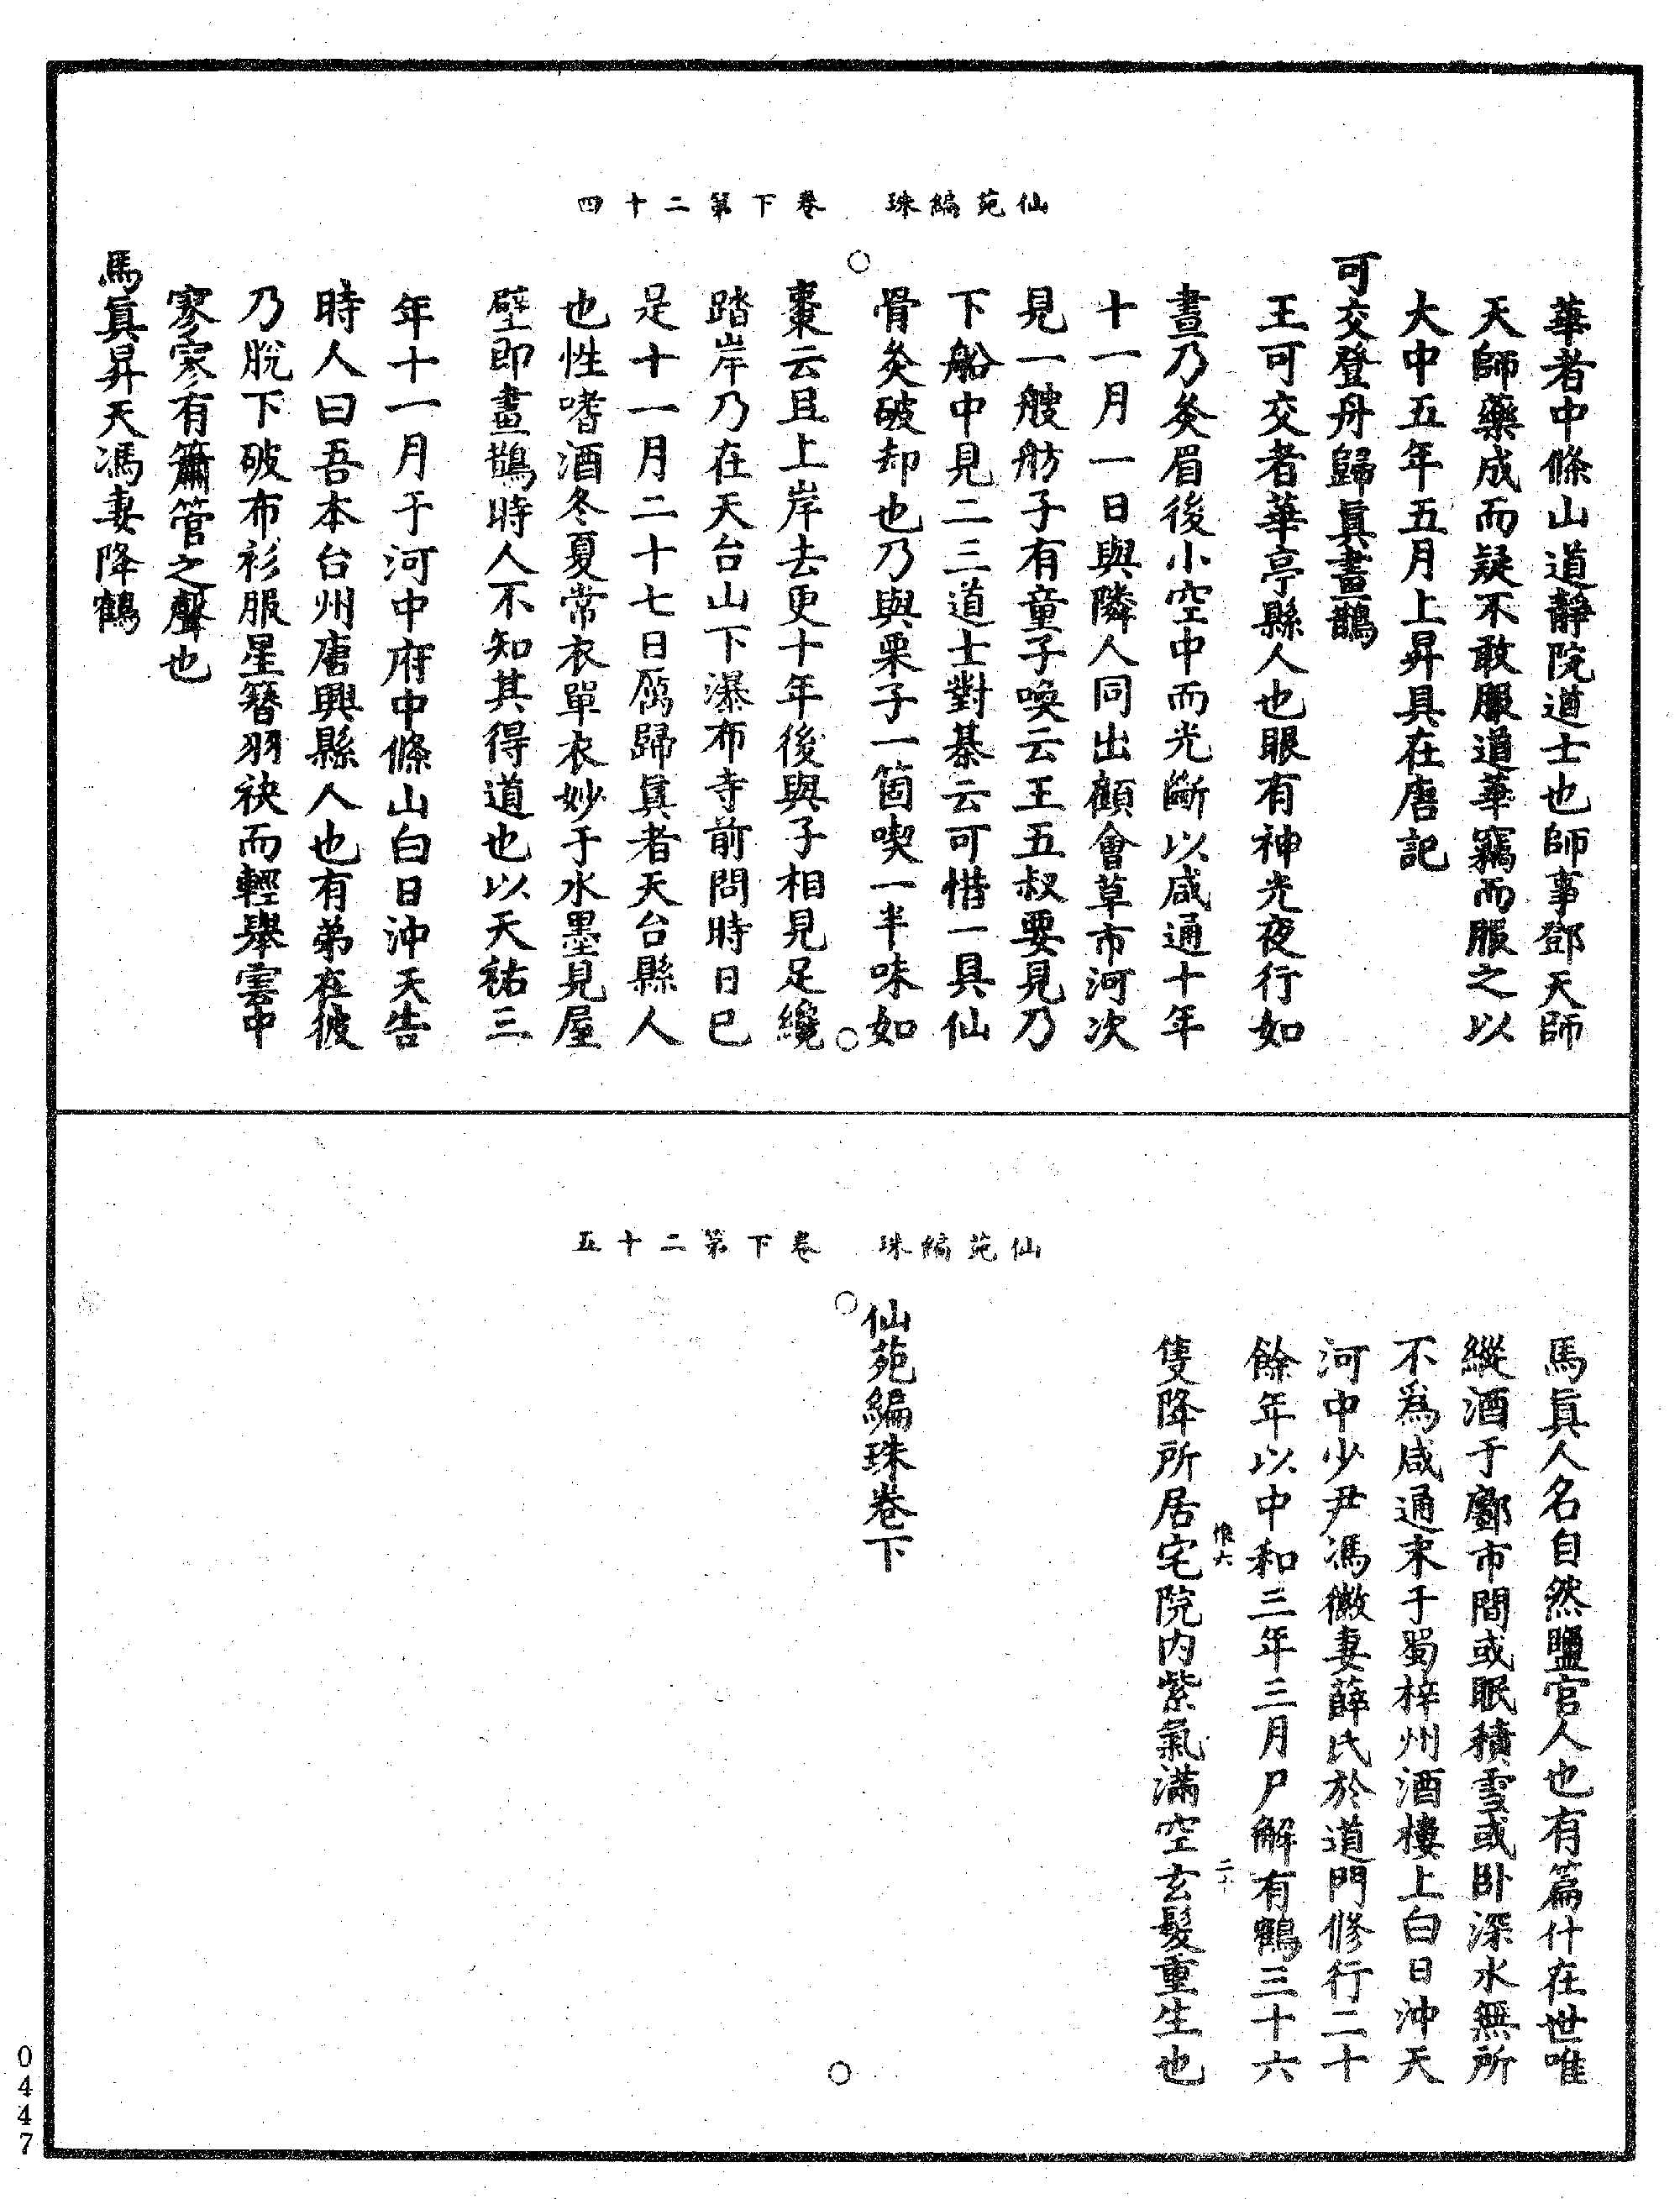 仙苑編珠　卷下第二十四
華者中條山道靜院道士也師事鄧天師
天師藥成而疑不敢服道華竊而服之以
大中五年五月上昇具在唐記
可交登舟歸眞畫鵲
王可交者華亭縣人也眼有神光夜行如
晝乃灸眉後小空中而光斷以咸通十年
十一月一日與隣人同出顧會草市河次
見一艘舫子有童子喚云王五叔要見乃
下船中見二三道士對碁云可惜一具仙
骨灸破却也乃與栗子一箇喫一半味如
棗云且上岸去更十年後與子相見足纔
踏岸乃在天台山下瀑布寺前問時日已
是十一月二十七日厲歸眞者天台縣人
也性嗜酒冬夏常衣單衣妙于水墨見屋
壁即畫鵲時人不知其得道也以天祐三
年十一月于河中府中條山白日沖天告
時人曰吾本台州唐興縣人也有弟在彼
乃脫下破布衫服星簪羽袂而輕舉雲中
寥寥有簫管之聲也
馬眞昇天馮妻降鶴
仙苑編珠　卷下第二十五
馬眞人名自然鹽官人也有篇什在世唯
縱酒于鄽市間或眠積雪或卧深水無所
不爲咸通末于蜀梓州酒樓上白日沖天
河中少尹馮徽妻薛氏於道門修行二十
餘年以中和三年三月尸解有鶴三十六
惟六　二十
隻降所居宅院内紫氣滿空玄髮重生也
仙苑編珠卷下
0447